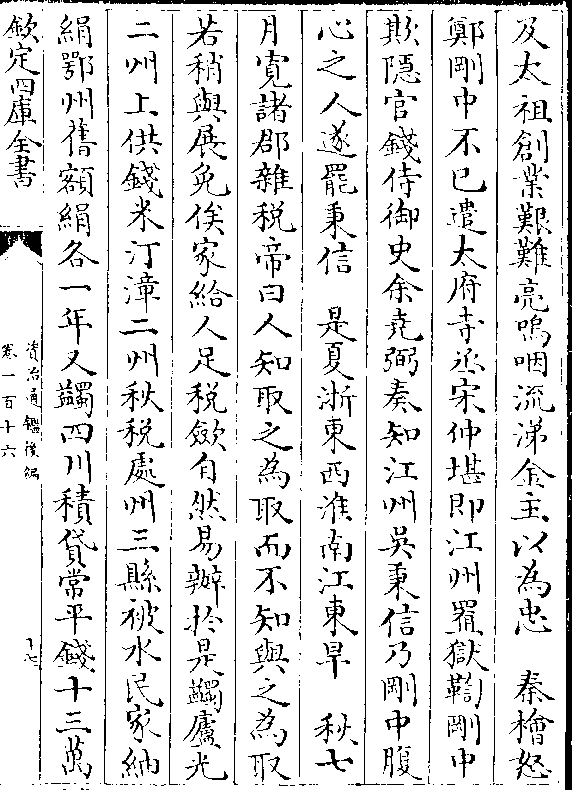 及太祖創業艱難亮嗚咽流涕金主以為忠　秦檜怒
鄭剛中不已遣太府寺丞宋仲堪即江州置獄鞫剛中
欺隠官錢侍御史余堯弼奏知江州吳秉信乃剛中腹
心之人遂罷秉信　是夏浙東西淮南江東旱　秋七
月寛諸郡雜税帝曰人知取之為取而不知與之為取
若稍與展免俟家給人足税斂自然易辦於是蠲廬光
二州上供錢米汀漳二州秋税處州三縣被水民家納
絹鄂州舊額絹各一年又蠲四川積貸常平錢十三萬
欽定四庫全書
資治通鑑後編
卷一百十六
十七